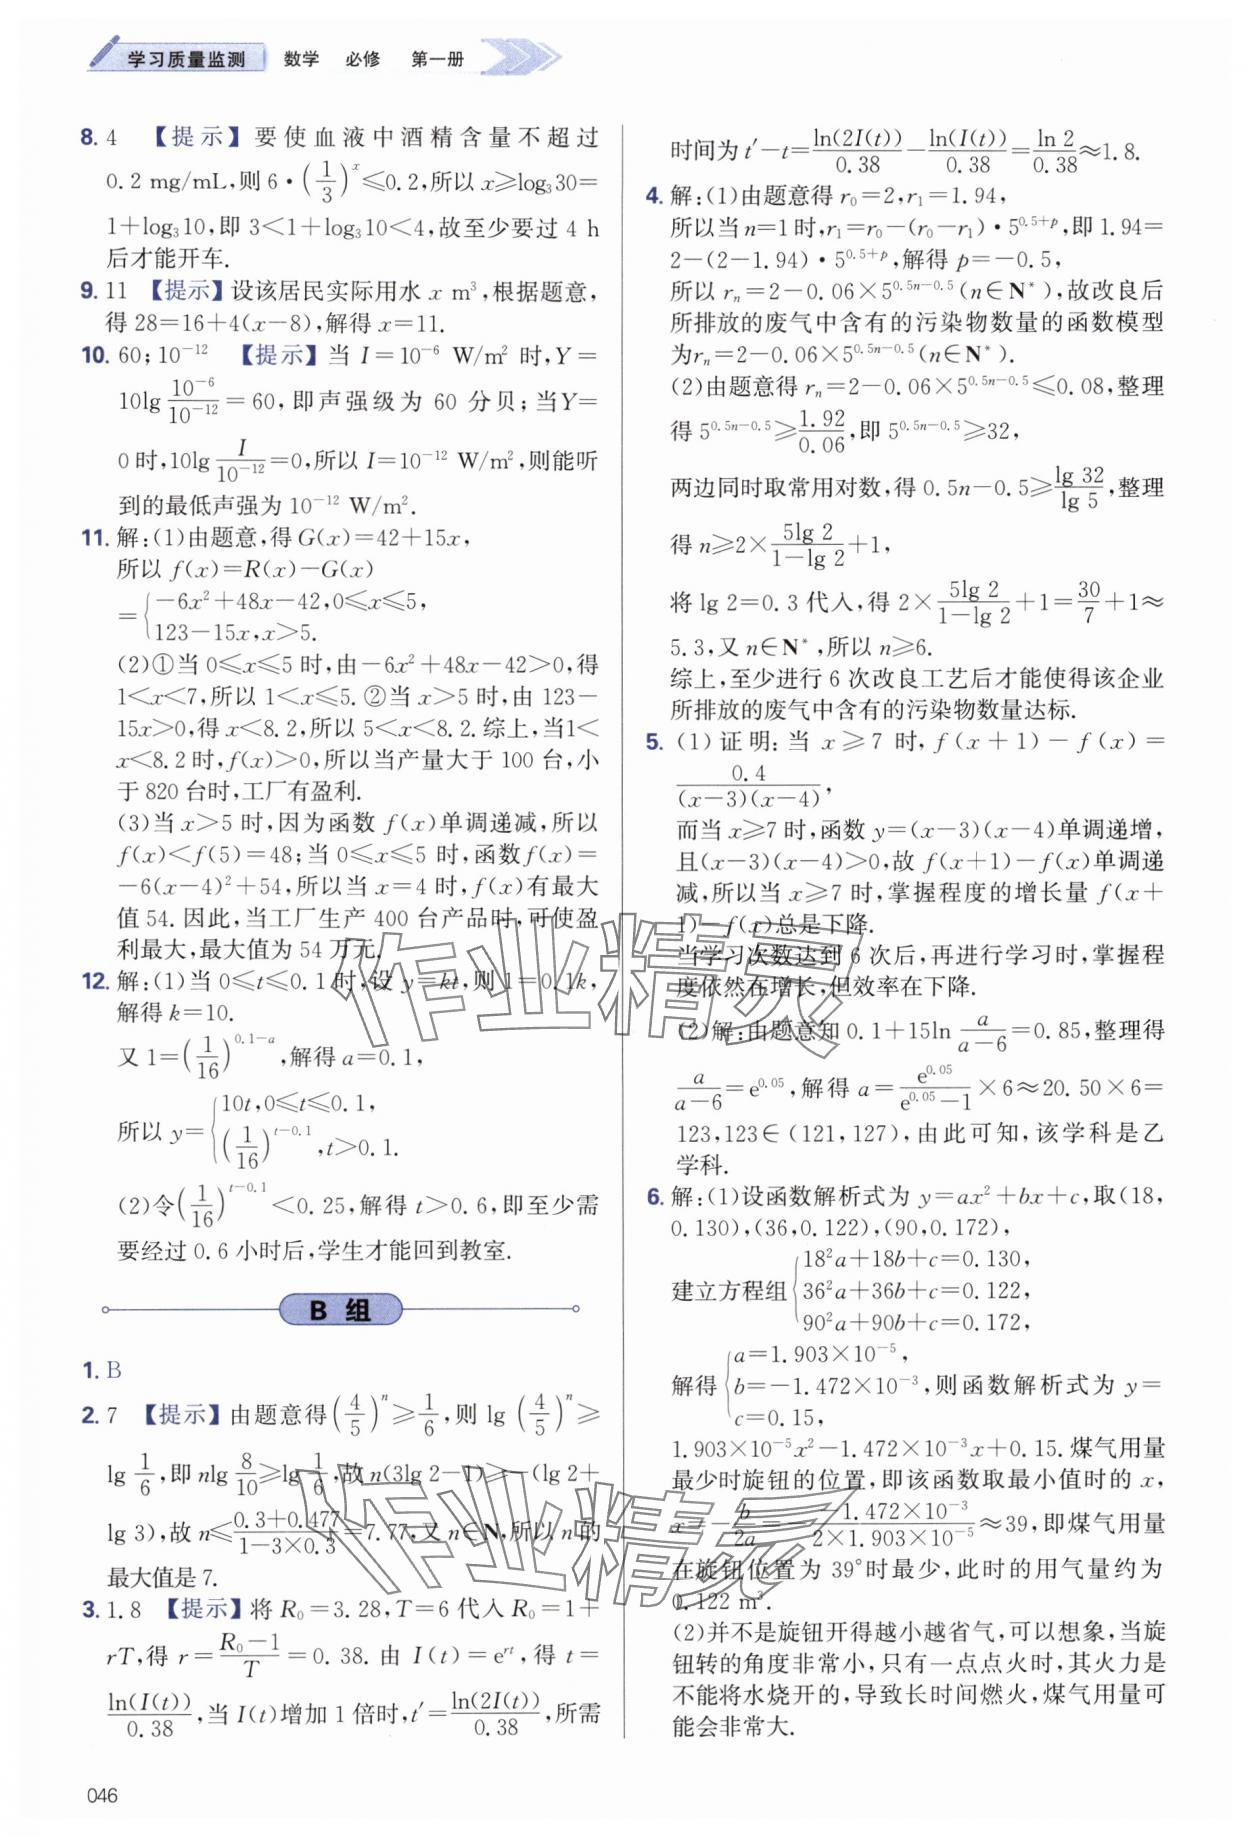 学习质量监测 数学 必修 第一册
8. 4 【提示】要使血液中酒精含量不超过
0.2 mg/mL,则 6·(1/3)^x≤0.2,所以 x≥log₃30=
1+log₃10,即 3<1+log₃10<4,故至少要过 4 h
后才能开车.
9. 11 【提示】设该居民实际用水 x m³,根据题意,
得 28=16+4(x-8),解得 x=11.
10. 60;10⁻¹² 【提示】当 I=10⁻⁶ W/m² 时,Y=
10lg 10⁻⁶/10⁻¹²=60,即声强级为 60 分贝;当Y=
0 时,10lg I/10⁻¹²=0,所以 I=10⁻¹² W/m²,则能听
到的最低声强为 10⁻¹² W/m².
11. 解:(1)由题意,得 G(x)=42+15x,
所以 f(x)=R(x)-G(x)
={-6x²+48x-42,0≤x≤5,
123-15x,x>5.
(2)①当 0≤x≤5 时,由-6x²+48x-42>0,得
1<x<7,所以 1<x≤5.②当 x>5 时,由 123-
15x>0,得 x<8.2,所以 5<x<8.2.综上,当1<
x<8.2 时,f(x)>0,所以当产量大于 100 台,小
于 820 台时,工厂有盈利.
(3)当 x>5 时,因为函数 f(x)单调递减,所以
f(x)<f(5)=48;当 0≤x≤5 时,函数 f(x)=
-6(x-4)²+54,所以当 x=4 时,f(x)有最大
值 54.因此,当工厂生产 400 台产品时,可使盈
利最大,最大值为 54 万元.
12. 解:(1)当 0≤t≤0.1 时,设 y=kt,则 1=0.1k,
解得 k=10.
又 1=(1/16)^(0.1-a),解得 a=0.1,
所以 y={10t,0≤t≤0.1,
(1/16)^(t-0.1),t>0.1.
(2)令(1/16)^(t-0.1)<0.25,解得 t>0.6,即至少需
要经过 0.6 小时后,学生才能回到教室.
B 组
1. B
2. 7 【提示】由题意得(4/5)^n≥1/6,则 lg (4/5)^n≥
lg 1/6,即 nlg 8/10≥lg 1/6,故 n(3lg 2-1)≥-(lg 2+
lg 3),故 n≤(0.3+0.477)/(1-3×0.3)=7.77,又 n∈N,所以 n 的
最大值是 7.
3. 1.8 【提示】将 R₀=3.28,T=6 代入 R₀=1+
rT,得 r=(R₀-1)/T=0.38.由 I(t)=e^(rt),得 t=
ln(I(t))/0.38,当 I(t)增加 1 倍时,t′=ln(2I(t))/0.38,所需
时间为 t′-t=ln(2I(t))/0.38-ln(I(t))/0.38=ln 2/0.38≈1.8.
4. 解:(1)由题意得 r₀=2,r₁=1.94,
所以当 n=1 时,r₁=r₀-(r₀-r₁)·5^(0.5+p),即 1.94=
2-(2-1.94)·5^(0.5+p),解得 p=-0.5,
所以 rₙ=2-0.06×5^(0.5n-0.5)(n∈N*),故改良后
所排放的废气中含有的污染物数量的函数模型
为rₙ=2-0.06×5^(0.5n-0.5)(n∈N*).
(2)由题意得 rₙ=2-0.06×5^(0.5n-0.5)≤0.08,整理
得 5^(0.5n-0.5)≥1.92/0.06,即 5^(0.5n-0.5)≥32,
两边同时取常用对数,得 0.5n-0.5≥lg 32/lg 5,整理
得 n≥2×5lg 2/(1-lg 2)+1,
将 lg 2=0.3 代入,得 2×5lg 2/(1-lg 2)+1=30/7+1≈
5.3,又 n∈N*,所以 n≥6.
综上,至少进行 6 次改良工艺后才能使得该企业
所排放的废气中含有的污染物数量达标.
5. (1)证明:当 x≥7 时,f(x+1)-f(x)=
0.4/((x-3)(x-4)),
而当 x≥7 时,函数 y=(x-3)(x-4)单调递增,
且(x-3)(x-4)>0,故 f(x+1)-f(x)单调递
减,所以当 x≥7 时,掌握程度的增长量 f(x+
1)-f(x)总是下降.
当学习次数达到 6 次后,再进行学习时,掌握程
度依然在增长,但效率在下降.
(2)解:由题意知 0.1+15ln a/(a-6)=0.85,整理得
a/(a-6)=e^0.05,解得 a=e^0.05/(e^0.05-1)×6≈20.50×6=
123,123∈(121,127),由此可知,该学科是乙
学科.
6. 解:(1)设函数解析式为 y=ax²+bx+c,取(18,
0.130),(36,0.122),(90,0.172),
建立方程组{18²a+18b+c=0.130,
36²a+36b+c=0.122,
90²a+90b+c=0.172,
解得{a=1.903×10⁻⁵,
b=-1.472×10⁻³,则函数解析式为 y=
c=0.15,
1.903×10⁻⁵x²-1.472×10⁻³x+0.15.煤气用量
最少时旋钮的位置,即该函数取最小值时的 x,
x=-b/2a=-(-1.472×10⁻³)/(2×1.903×10⁻⁵)≈39,即煤气用量
在旋钮位置为 39°时最少,此时的用气量约为
0.122 m³.
(2)并不是旋钮开得越小越省气,可以想象,当旋
钮转的角度非常小,只有一点点火时,其火力是
不能将水烧开的,导致长时间燃火,煤气用量可
能会非常大.
作业精灵
作业精灵
046